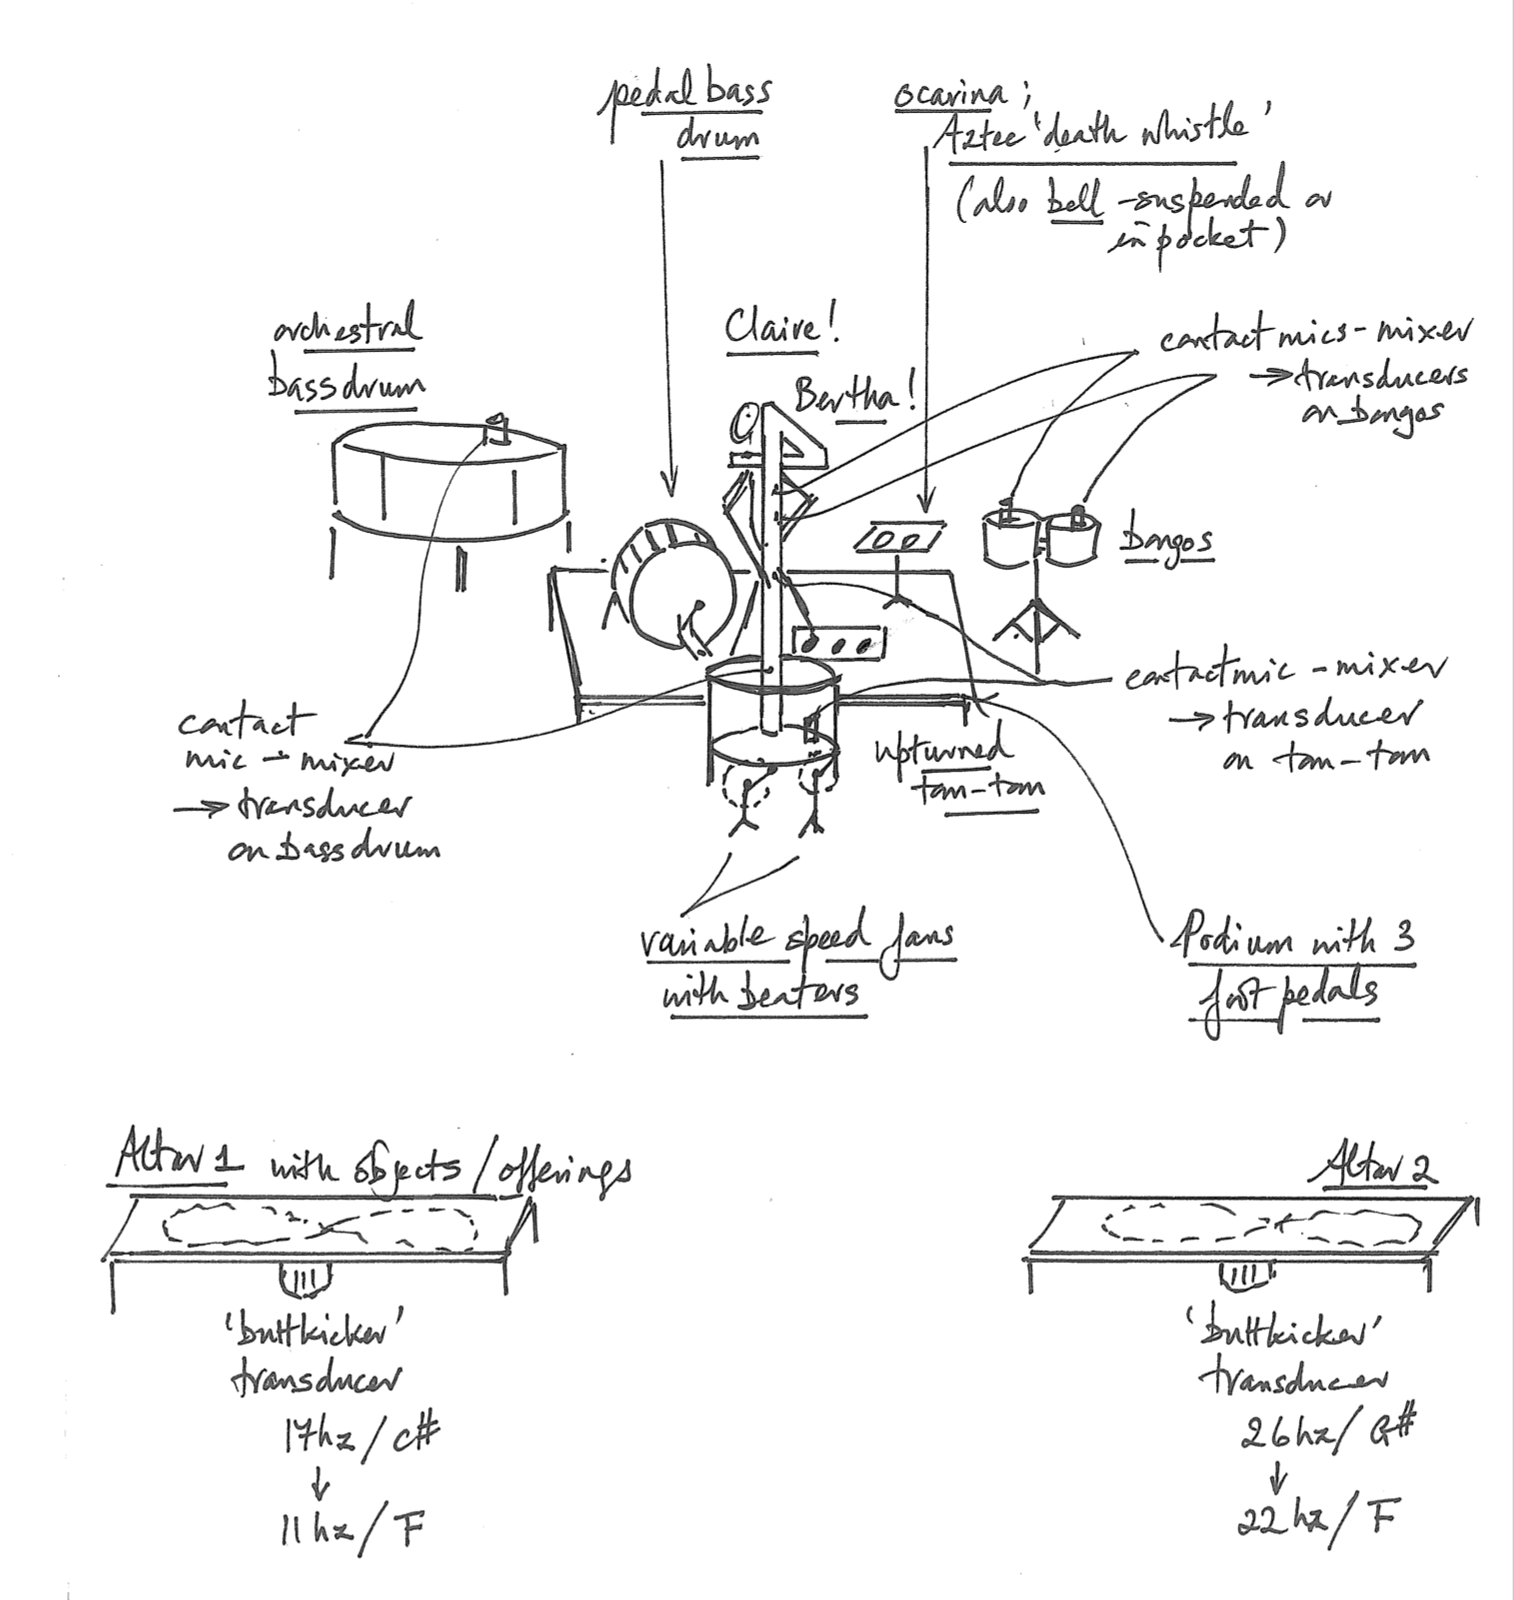 pedal bass
drum
ocarina ;
Aztec 'death whistle'
(also bell - suspended or
in pocket)
orchestral
bass drum
Claire!
Bertha!
contact mics - mixer
→ transducers
on bongos
bongos
contact
mic - mixer
→ transducer
on bass drum
contact mic - mixer
→ transducer
on tam-tam
upturned
tam-tam
variable speed fans
with beaters
Podium with 3
foot pedals
Altar 1 with objects / offerings
'buttkicker'
transducer
17hz / C#
↓
11hz / F
Altar 2
'buttkicker'
transducer
26hz / G#
↓
22hz / F